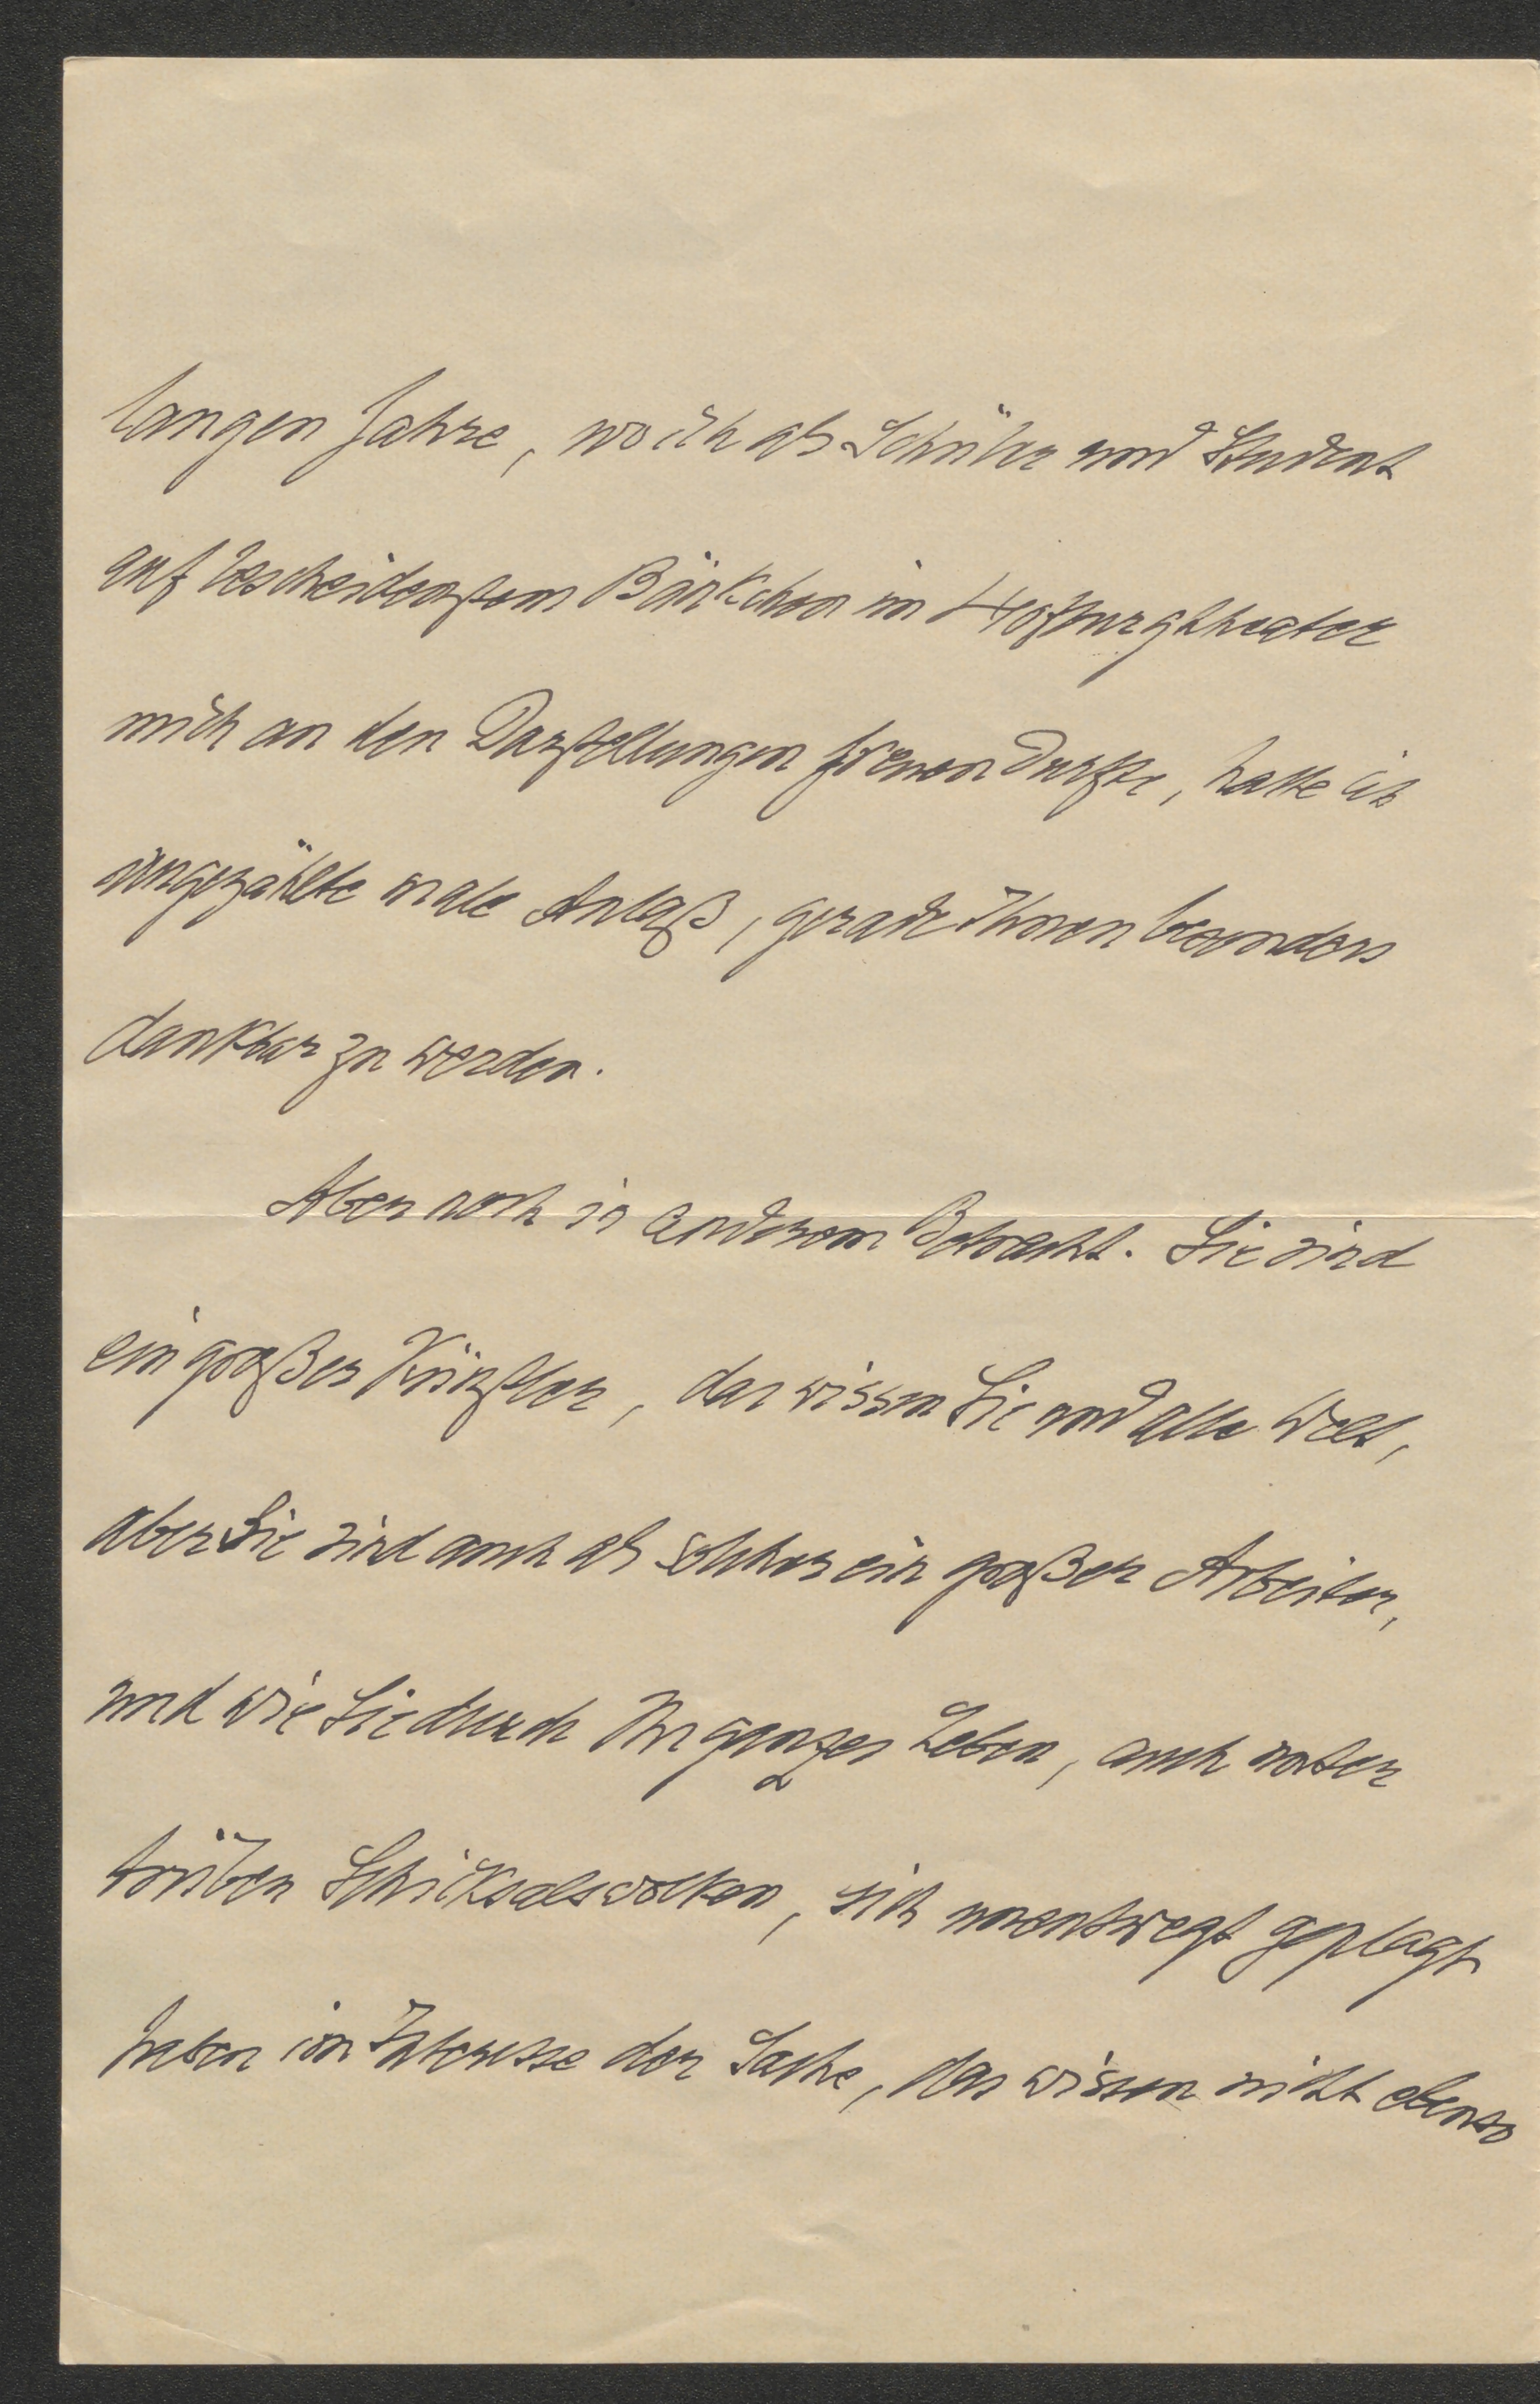 langen Jahre, wo ich als Schüler und Student
auf bescheidenstem Bänkchen im Hofburgtheater
mich an den Darstellungen freuen durfte, hatte ich
ungezählte male Anlaß, gerade Ihnen besonders
dankbar zu werden.
Aber noch in anderem Betracht. Sie sind
ein großer Künstler, das wissen Sie und alle Welt,
aber Sie sind auch als solcher ein großer Arbeiter,
und wie Sie durch Ihr ganzes Leben, auch unter
trüben Schicksalswolken, sich unentwegt geplagt
haben im Interesse der Sache, das wissen nicht ebenso